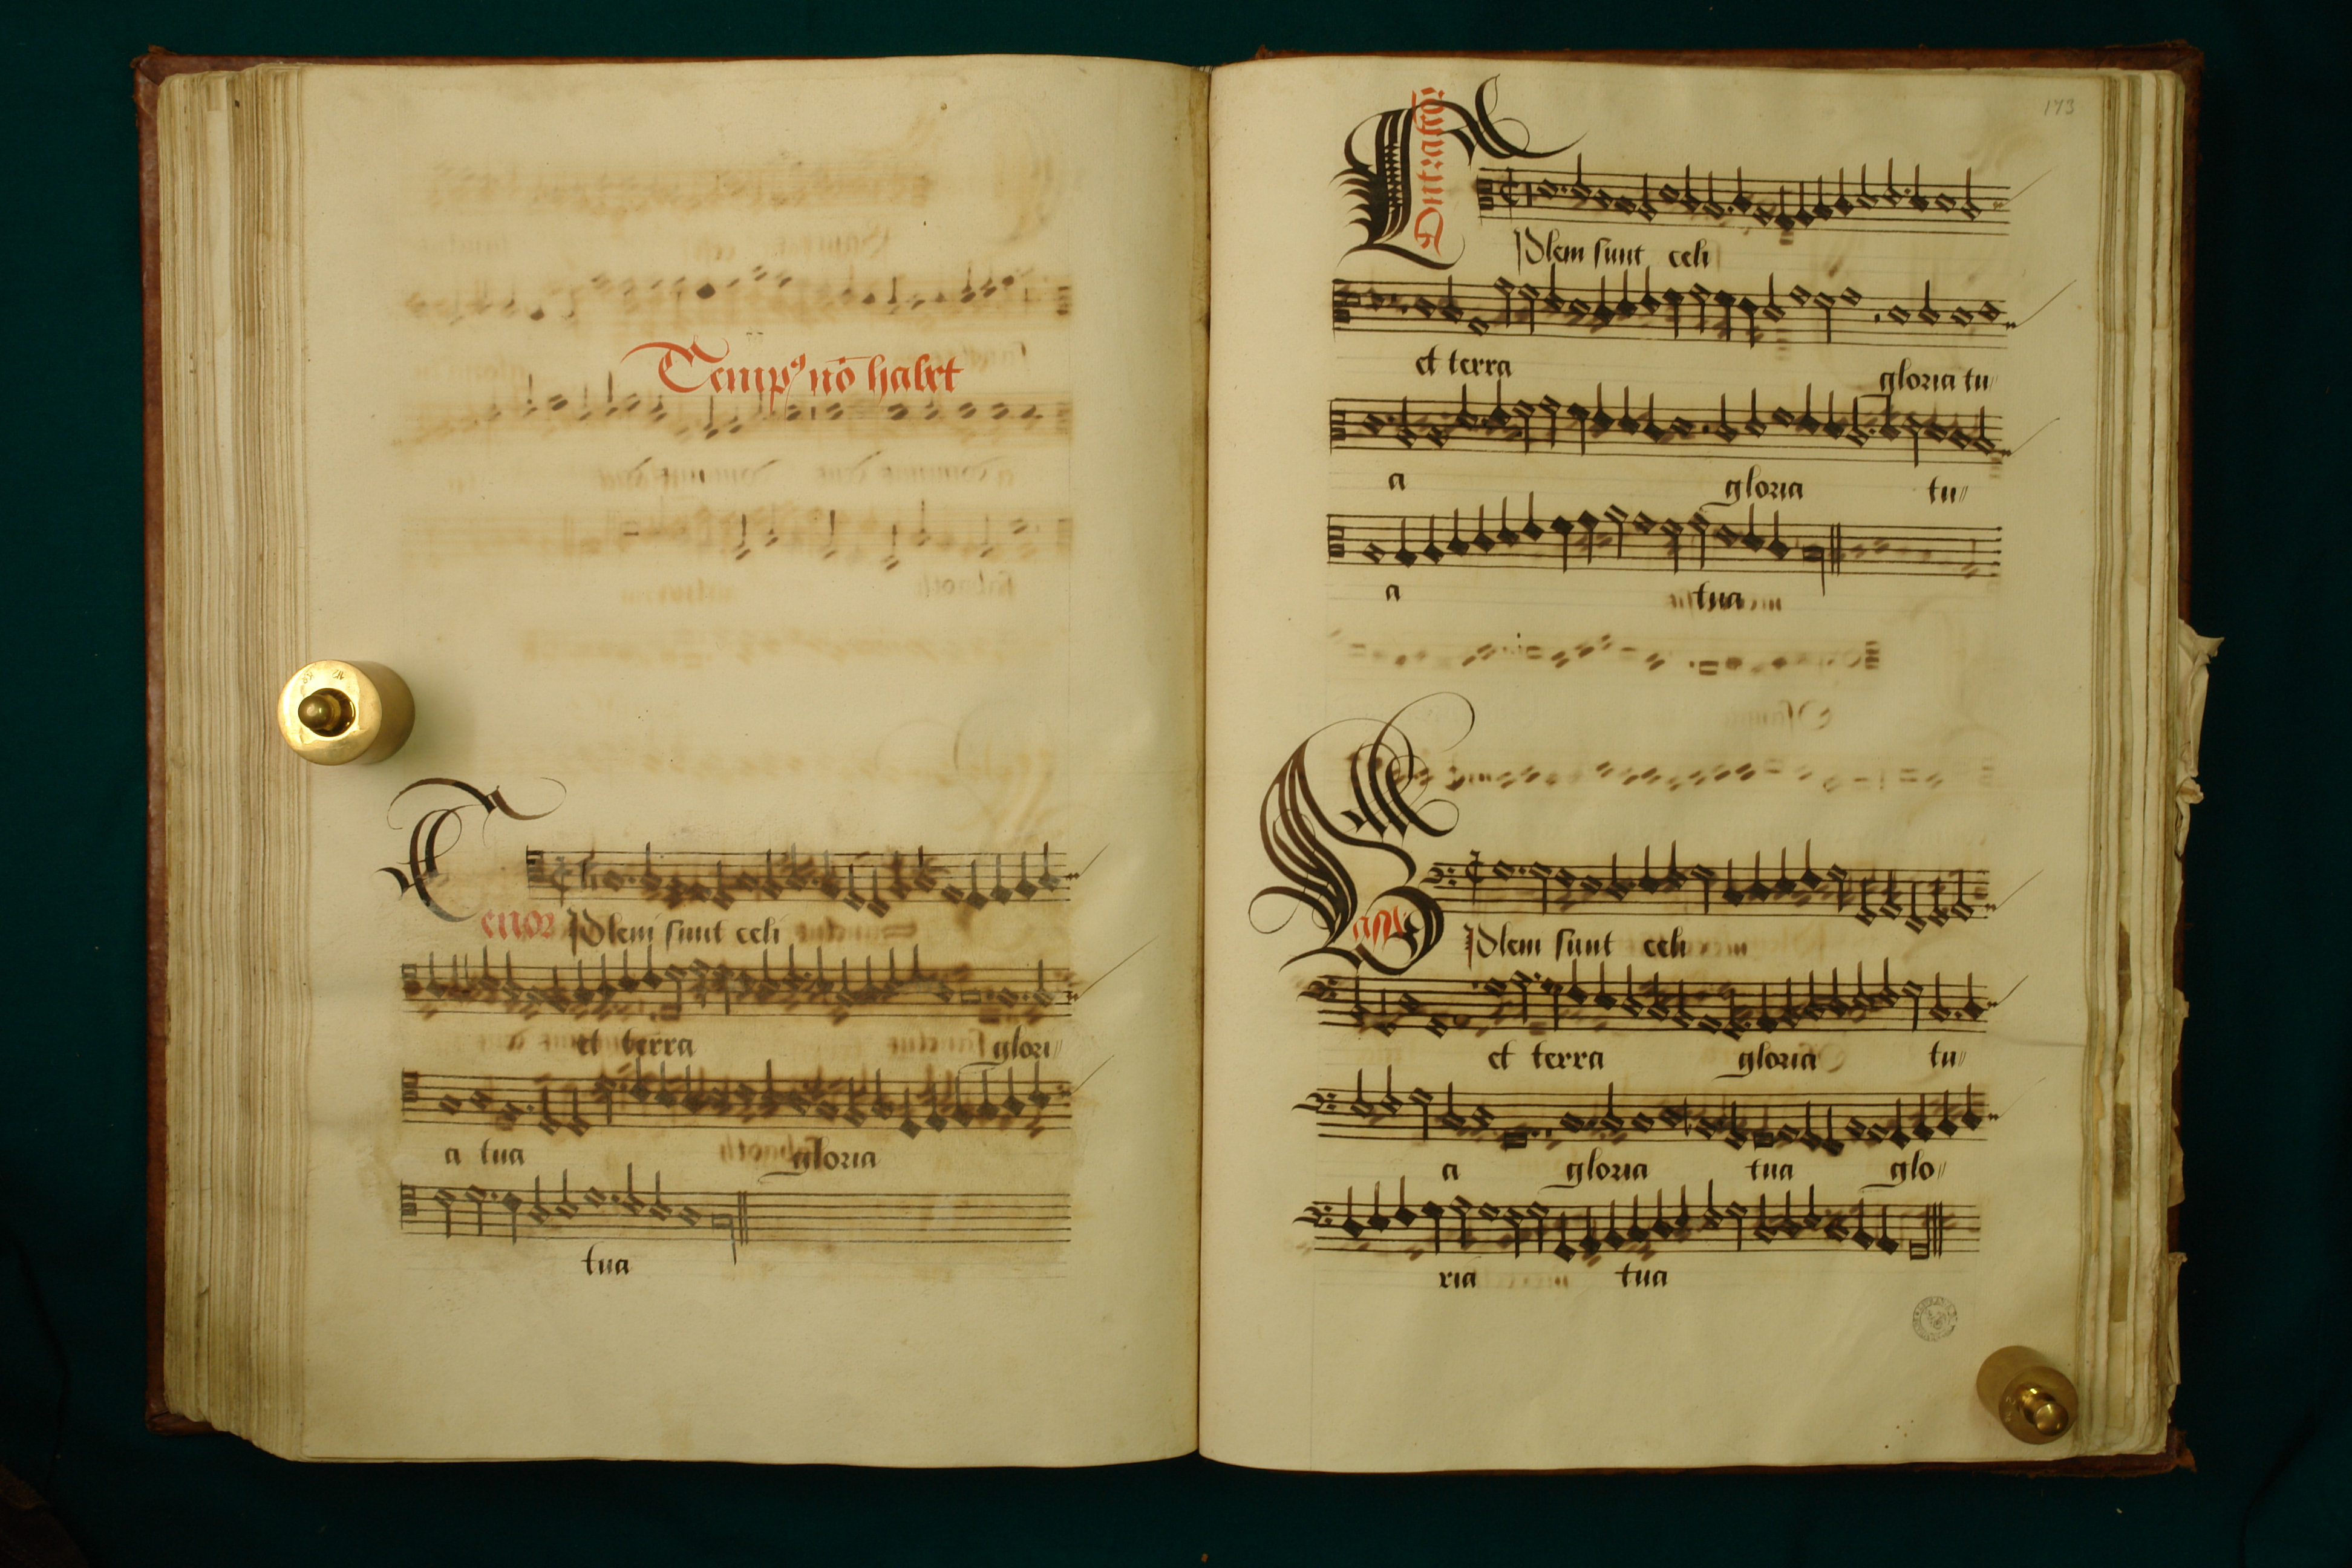 Temp⁹ nō habet
Tenor Pleni sunt celi
et terra glori
a tua gloria
tua
173
Contratenor
Pleni sunt celi
et terra gloria tu
a gloria tu
a tua
Bassus
Pleni sunt celi
et terra gloria tu
a gloria tua glo
ria tua